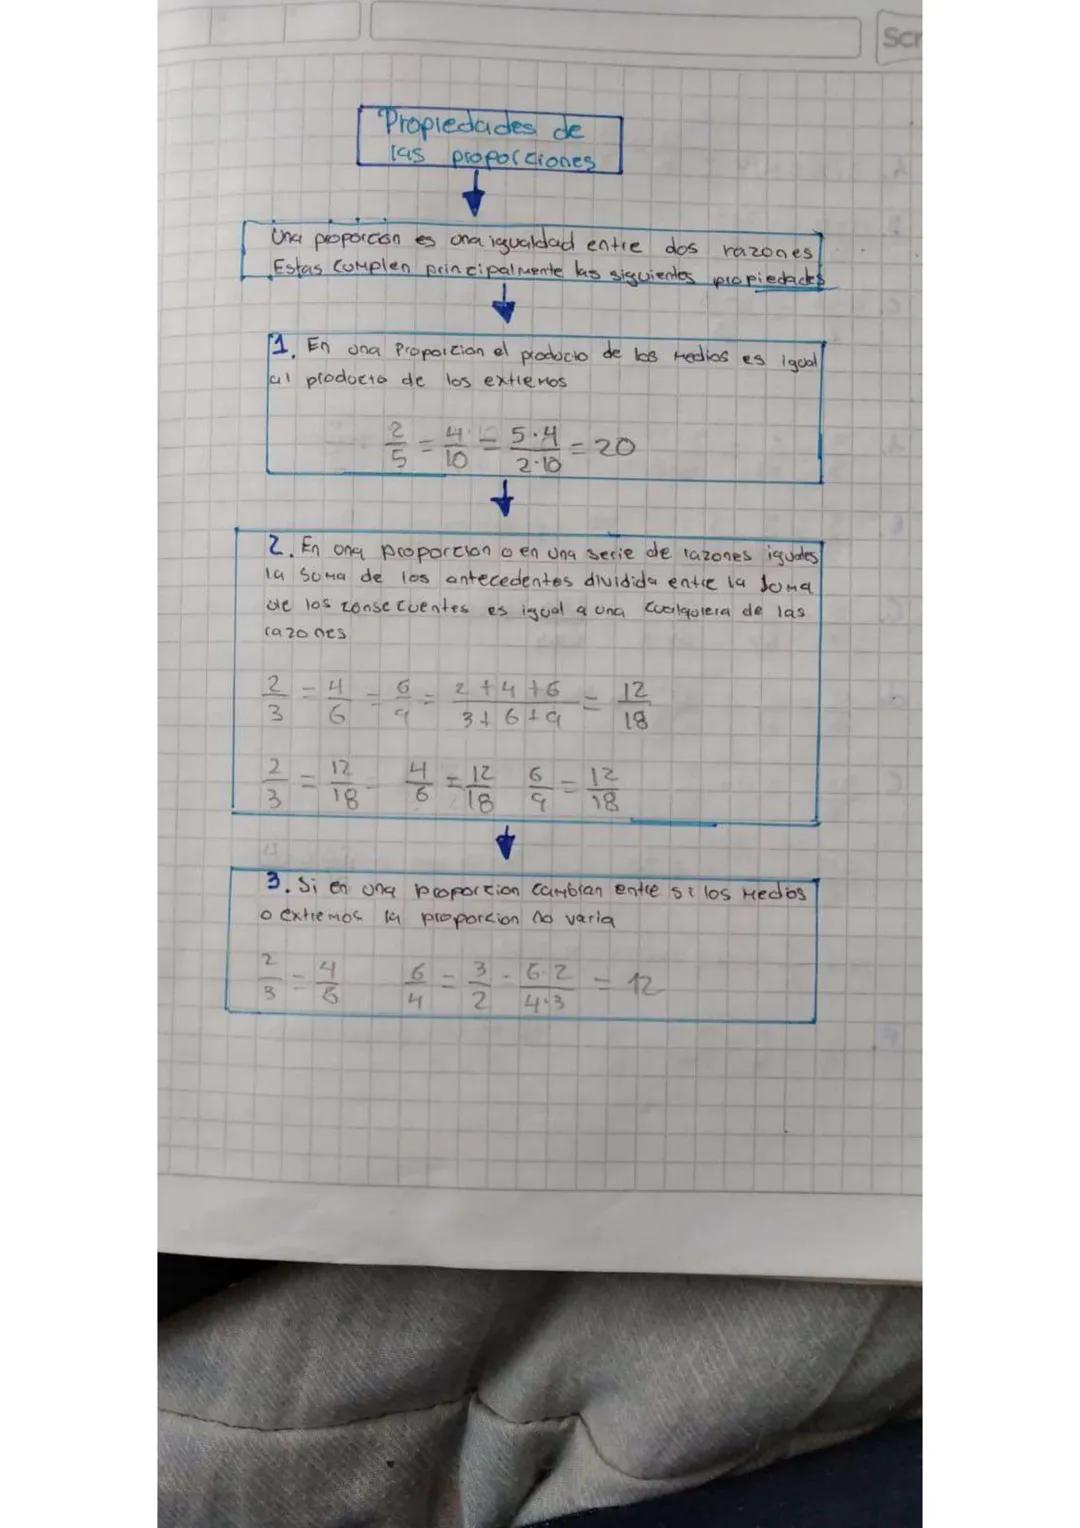 Scr
Propiedades de
las proporciones
Una proporción es una igualdad entre dos razones
Estas cumplen principalmente las siguientes propiedades
1. En una Proporcion el producto de los medios es igual
al producto de los extremos
2/5 = 4/10 = 5·4/2·10 = 20
2. En una proporcion o en una serie de razones iguales
la suma de los antecedentes dividida entre la suma
de los consecuentes es igual a una cualquiera de las
razones
2/3 = 4/6 = 6/9 = 2+4+6/3+6+9 = 12/18
2/3 = 12/18 4/6 = 12/18 6/9 = 12/18
3. Si en una proporcion cambian entre si los medios
o extremos la proporcion no varia
2/3 = 4/6 6/4 = 3/2 = 6·2/4·3 = 12